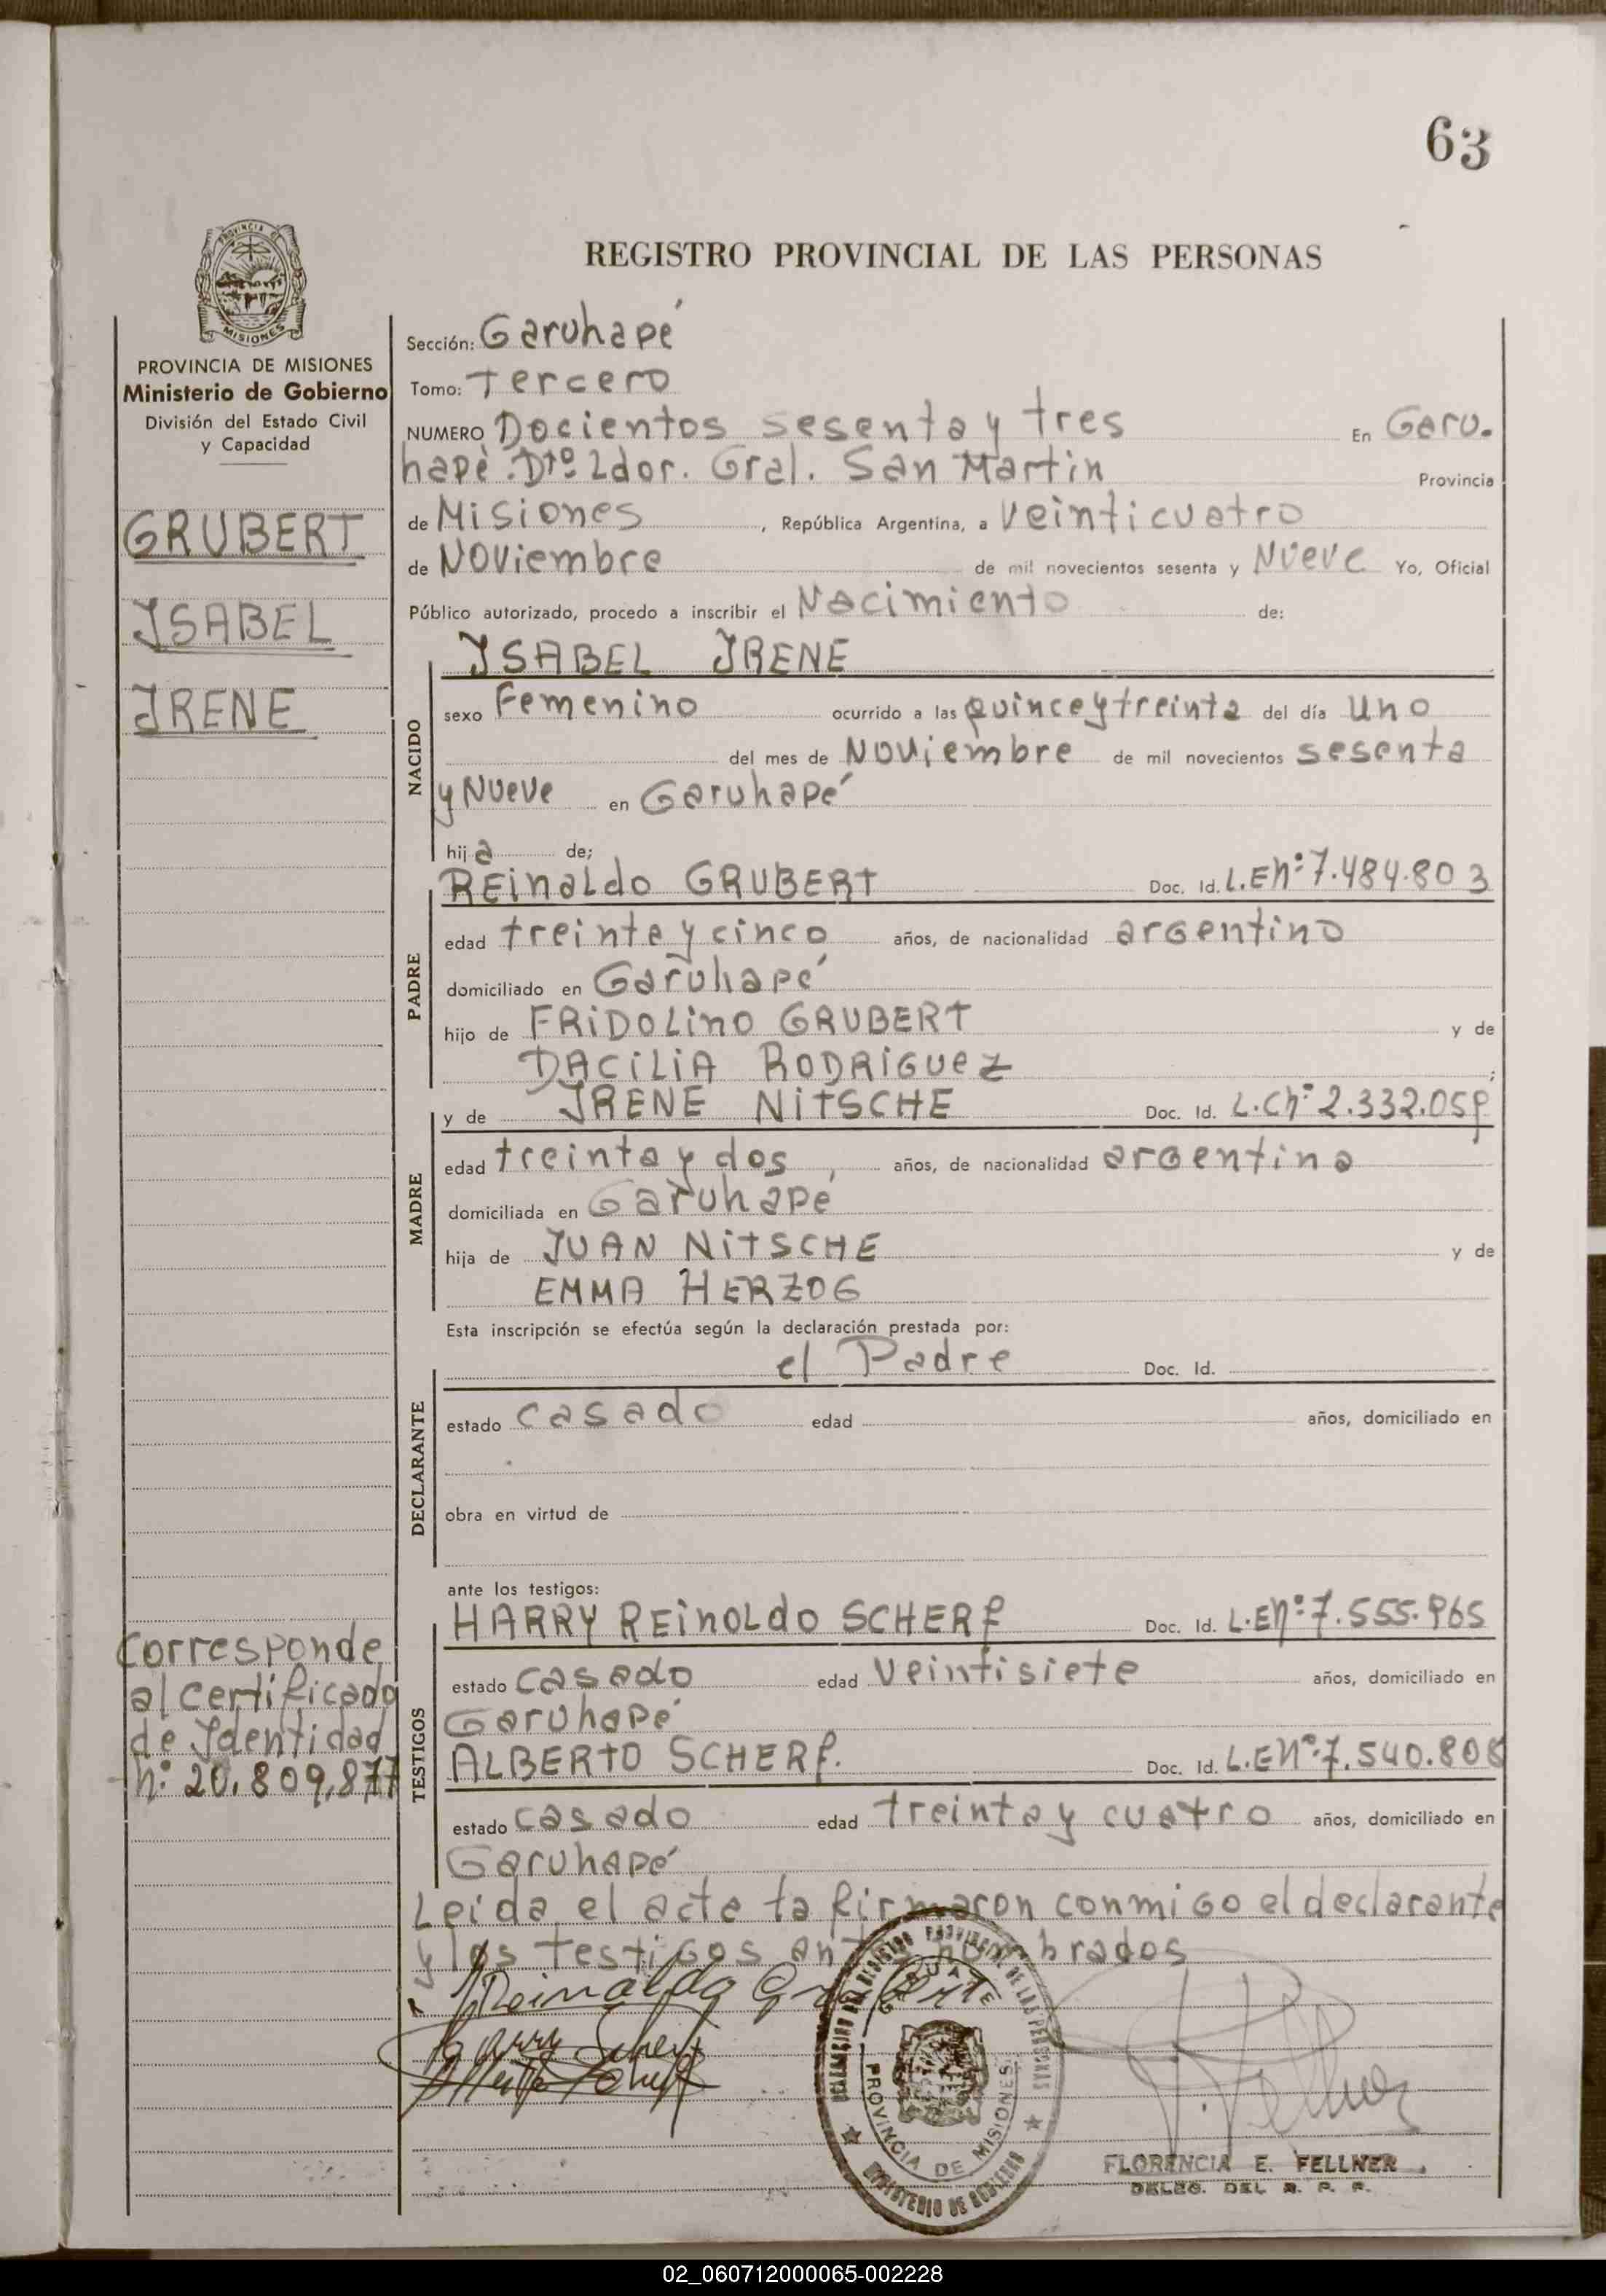 63
PROVINCIA DE
MISIONES
REGISTRO PROVINCIAL DE LAS PERSONAS
PROVINCIA DE MISIONES
Ministerio de Gobierno
División del Estado Civil
y Capacidad
GRUBERT
ISABEL
IRENE
Corresponde
al certificado
de Identidad
n: 20.809.877
Sección: Garuhapé
Tomo: Tercero
NUMERO Docientos sesenta y tres En Garu.
hapé. Dto. Ldor. Gral. San Martin Provincia
de Misiones, República Argentina, a veinticuatro
de Noviembre de mil novecientos sesenta y Nueve Yo, Oficial
Público autorizado, procedo a inscribir el Nacimiento de:
ISABEL IRENE
NACIDO
sexo Femenino ocurrido a las quince y treinta del día uno
del mes de Noviembre de mil novecientos sesenta
y Nueve en Garuhapé
hija de;
PADRE
REinaldo GRUBERT Doc. Id. L.En: 7.484.803
edad treinta y cinco años, de nacionalidad argentino
domiciliado en Garuhapé
hijo de FRiDOLino GRUBERT y de
DACiLiA RODRiGUez;
MADRE
y de IRENE NiTSCHE Doc. Id. L.Cn: 2.332.059
edad treinta y dos, años, de nacionalidad argentina
domiciliada en Garuhapé
hija de JUAN NiTSCHE y de
EMMA HERZOG
Esta inscripción se efectúa según la declaración prestada por:
DECLARANTE
el Padre Doc. Id.
estado casado edad años, domiciliado en
obra en virtud de
ante los testigos:
TESTIGOS
HARRY REinoLdo SCHERf Doc. Id. L.En: 7.555.965
estado casado edad veintisiete años, domiciliado en
Garuhapé
ALBERTO SCHERf. Doc. Id. L.En: 7.540.808
estado casado edad treinta y cuatro años, domiciliado en
Garuhapé
Leida el acta la firmaron conmigo el declarante
y los testigos antes nombrados
Reinaldo Grubert
Harry Scherf
Alberto Scherf
PROVINCIA DE MISIONES
MINISTERIO DE GOBIERNO
F. Fellner
FLORENCIA E. FELLNER
DELEG. DEL R. P. P.
02_060712000065-002228